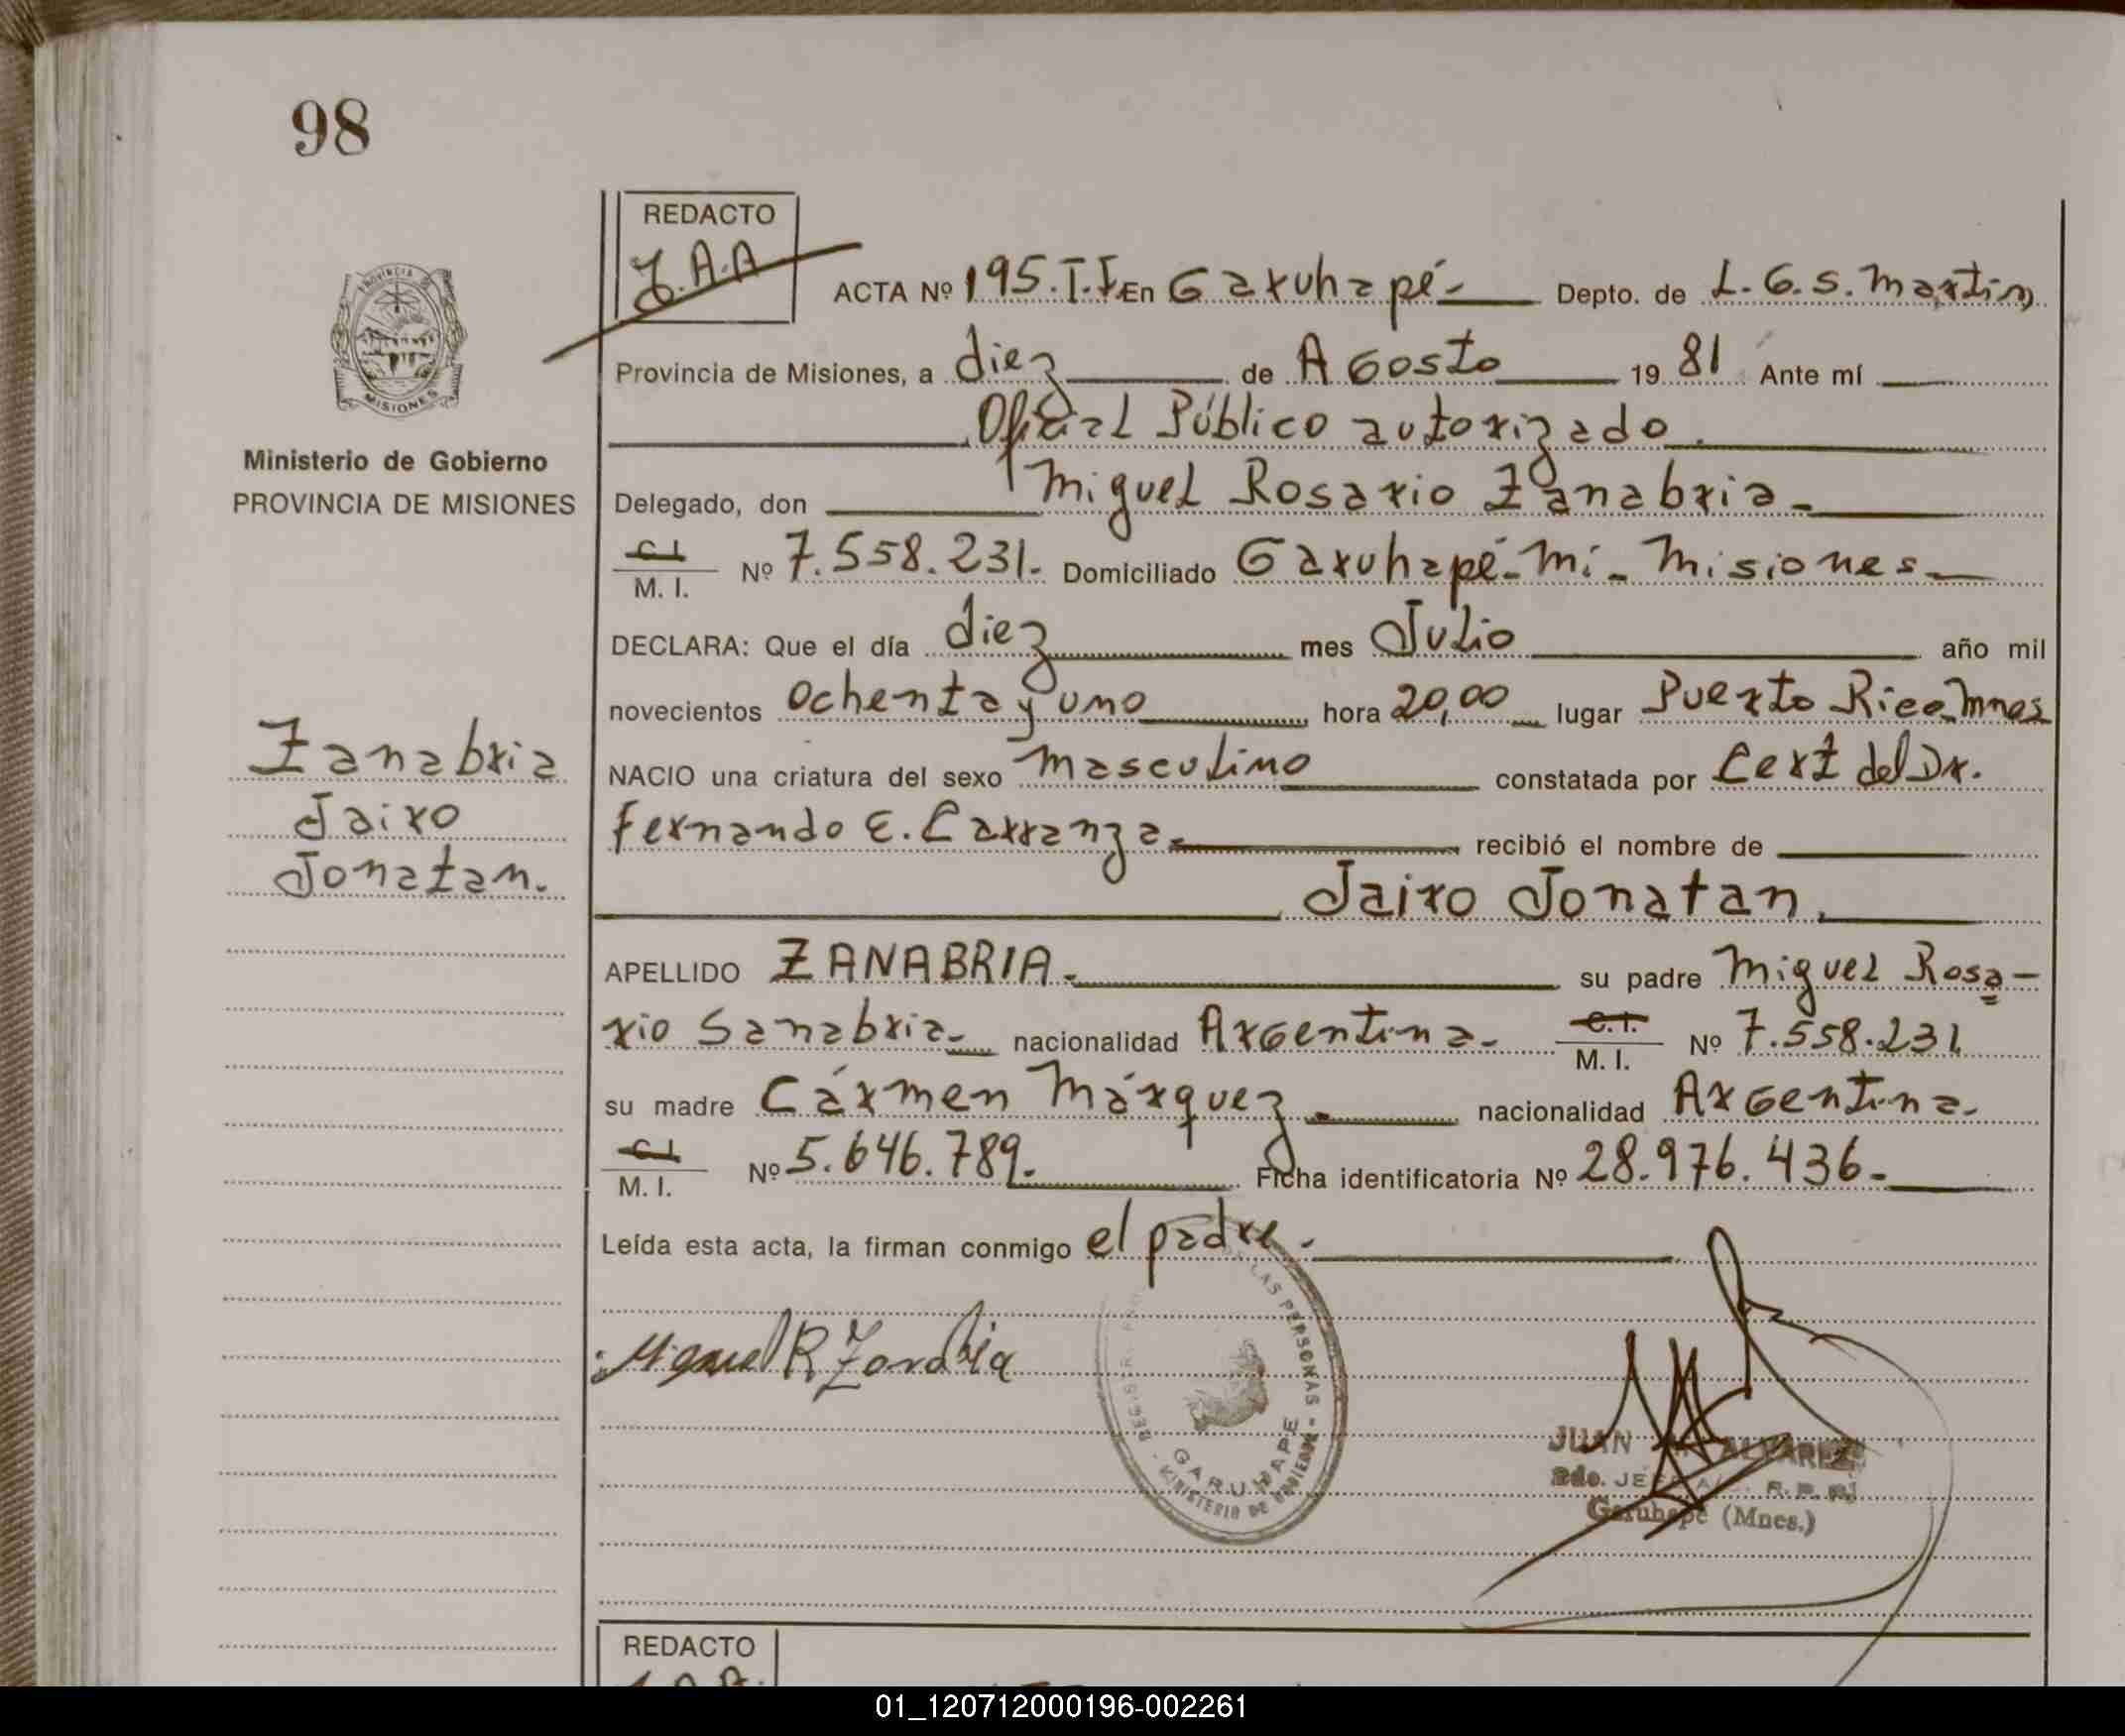 98
REDACTO
J.A.A
ACTA Nº 195.T.I. En Garuhapé- Depto. de L.G.S. Martin
PROVINCIA
MISIONES
Provincia de Misiones, a diez de AGosto 1981 Ante mí
Oficial Público autorizado.
Ministerio de Gobierno
PROVINCIA DE MISIONES
Delegado, don Miguel Rosario Zanabria-
C.I.
M. I. Nº 7.558.231.- Domiciliado Garuhapé-Mí- Misiones-
DECLARA: Que el día diez mes Julio año mil
novecientos ochenta y uno hora 20,00 lugar Puerto Rico-Mnes
Zanabria
Jairo
Jonatan.
NACIO una criatura del sexo masculino constatada por Cert del Dr.
Fernando E. Carranza- recibió el nombre de
Jairo Jonatan.
APELLIDO ZANABRIA.- su padre Miguel Rosa-
rio Sanabria- nacionalidad Argentina- C.I. M. I. Nº 7.558.231
su madre Cármen Márquez.- nacionalidad Argentina-
C.I.
M. I. Nº 5.646.789.- Ficha identificatoria Nº 28.976.436-
Leída esta acta, la firman conmigo el padre.-
Miguel R Zanabria
LAS PERSONAS - GARUHAPE - MINISTERIO DE GOBIERNO
JUAN ALVAREZ
Garuhape (Mnes.)
REDACTO
01_120712000196-002261